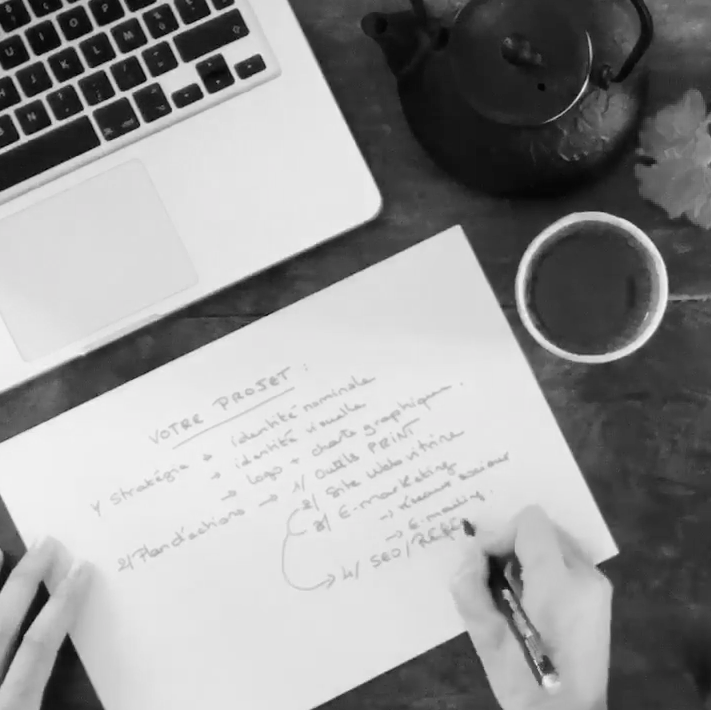 VOTRE PROJET :
1/ Stratégie → identité nominale
→ identité visuelle
→ logo + charte graphique.
2/ Plan d'actions → 1/ Outils PRINT
2/ Site Web vitrine
3/ E-marketing
→ réseaux sociaux
→ E-mailing.
4/ SEO/REFE